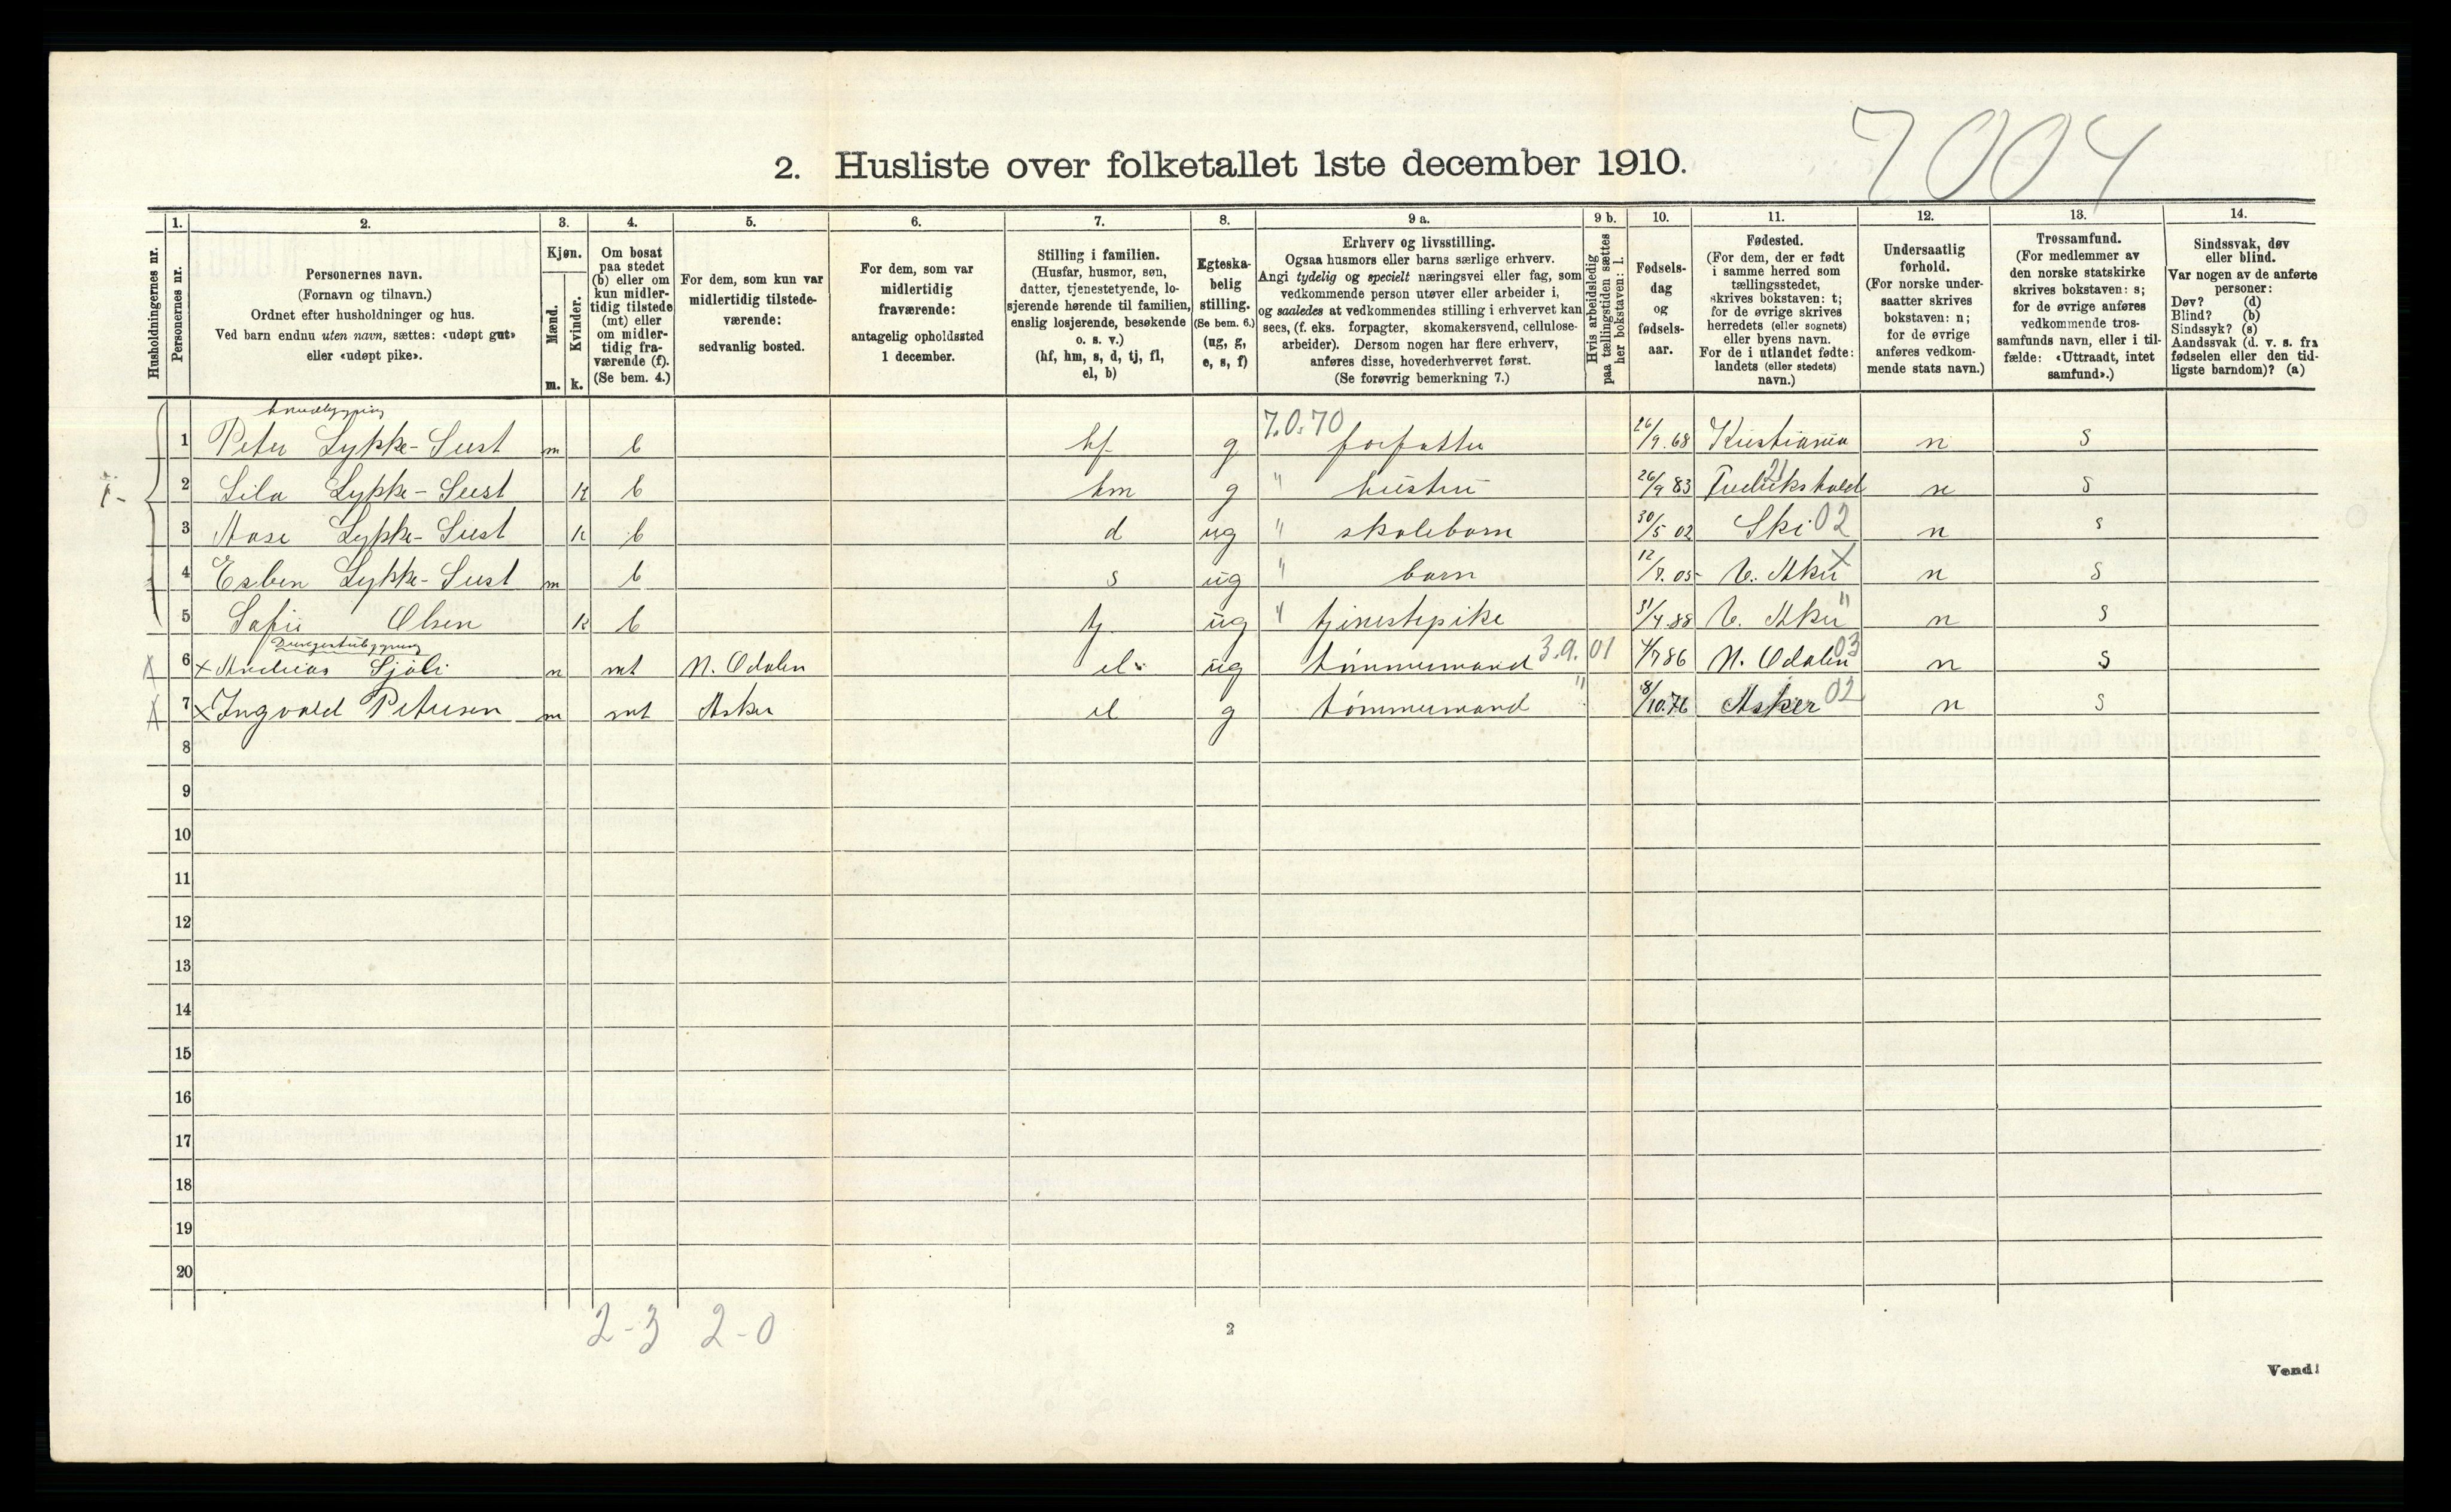 7004
2. Husliste over folketallet 1ste december 1910.
Husholdningernes nr.
1. Personernes nr.
2. Personernes navn.
(Fornavn og tilnavn.)
Ordnet efter husholdninger og hus.
Ved barn endnu uten navn, sættes: «udøpt gut»
eller «udøpt pike».
3. Kjøn.
Mænd. m.
Kvinder. k.
4. Om bosat
paa stedet
(b) eller om
kun midler-
tidig tilstede
(mt) eller
om midler-
tidig fra-
værende (f).
(Se bem. 4.)
5. For dem, som kun var
midlertidig tilstede-
værende:
sedvanlig bosted.
6. For dem, som var
midlertidig
fraværende:
antagelig opholdssted
1 december.
7. Stilling i familien.
(Husfar, husmor, søn,
datter, tjenestetyende, lo-
sjerende hørende til familien,
enslig losjerende, besøkende
o. s. v.)
(hf, hm, s, d, tj, fl,
el, b)
8. Egteska-
belig
stilling.
(Se bem. 6.)
(ug, g,
e, s, f)
9 a. Erhverv og livsstilling.
Ogsaa husmors eller barns særlige erhverv.
Angi tydelig og specielt næringsvei eller fag, som
vedkommende person utøver eller arbeider i,
og saaledes at vedkommendes stilling i erhvervet kan
sees, (f. eks. forpagter, skomakersvend, cellulose-
arbeider). Dersom nogen har flere erhverv,
anføres disse, hovederhvervet først.
(Se forøvrig bemerkning 7.)
9 b. Hvis arbeidsledig
paa tællingstiden sættes
her bokstaven: l.
10. Fødsels-
dag
og
fødsels-
aar.
11. Fødested.
(For dem, der er født
i samme herred som
tællingsstedet,
skrives bokstaven: t;
for de øvrige skrives
herredets (eller sognets)
eller byens navn.
For de i utlandet fødte:
landets (eller stedets)
navn.)
12. Undersaatlig
forhold.
(For norske under-
saatter skrives
bokstaven: n;
for de øvrige
anføres vedkom-
mende stats navn.)
13. Trossamfund.
(For medlemmer av
den norske statskirke
skrives bokstaven: s;
for de øvrige anføres
vedkommende tros-
samfunds navn, eller i til-
fælde: «Uttraadt, intet
samfund».)
14. Sindssvak, døv
eller blind.
Var nogen av de anførte
personer:
Døv? (d)
Blind? (b)
Sindssyk? (s)
Aandssvak (d. v. s. fra
fødselen eller den tid-
ligste barndom)? (a)
1 Peter Lykke-Seest m b hf g 7.0.70 forfatter 26/9.68 Kristiania n s
2 Lykke-Seest k b hm g " hustru 26/9 83 Fredrikshald 21 n s
3 Aase Lykke-Seest k b d ug " skolebarn 30/5 02 Ski 02 n s
4 Esben Lykke-Seest m b s ug " barn 12/7.05 V. Aker X n s
5 Sofie Olsen k b tj ug " tjenestepike 31/4.88 V. Aker " n s
6 x Andreas Sjøli m mt N. Odalen el ug tømmermand 3.9.01 4/7 86 N. Odalen 03 n s
7 x Ingvald Petersen m mt Asker el g tømmermand " 8/10.76 Asker 02 n s
8
9
10
11
12
13
14
15
16
17
18
19
20
2-3 2-0
2
Vend!